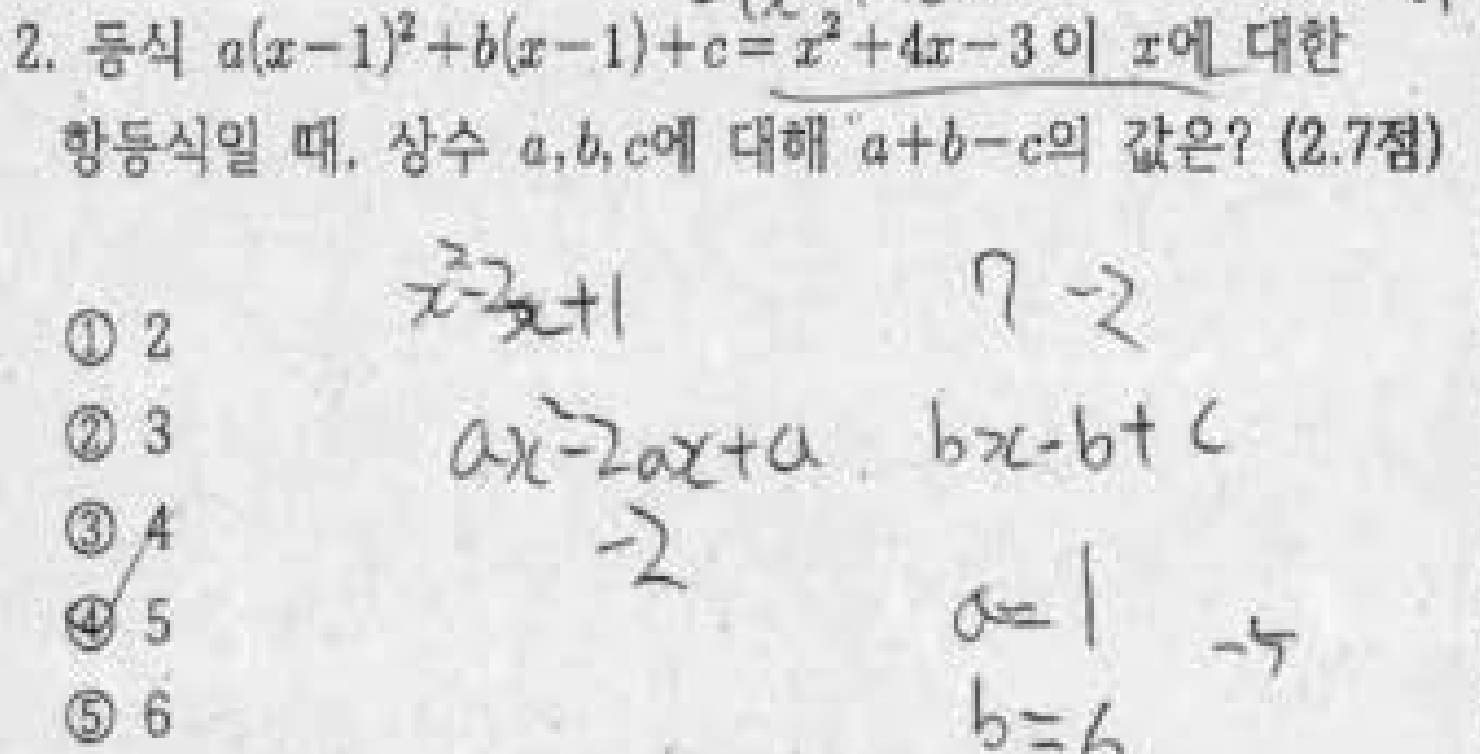 2. 등식 a(x-1)²+b(x-1)+c=x²+4x-3이 x에 대한
항등식일 때, 상수 a, b, c에 대해 a+b-c의 값은? (2.7점)
x²-2x+1
7 -2
① 2
② 3
ax²-2ax+a bx-b+c
③ 4
-2
a=1
④ 5
-5
⑤ 6
b=6